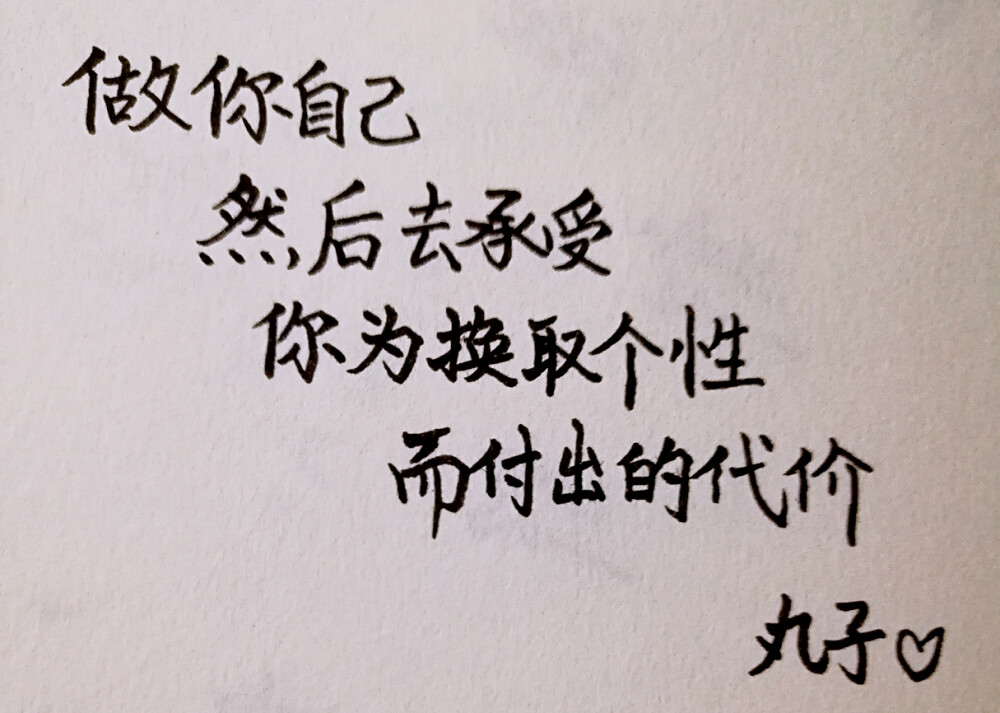 做你自己
然后去承受
你为换取个性
而付出的代价
丸子♡